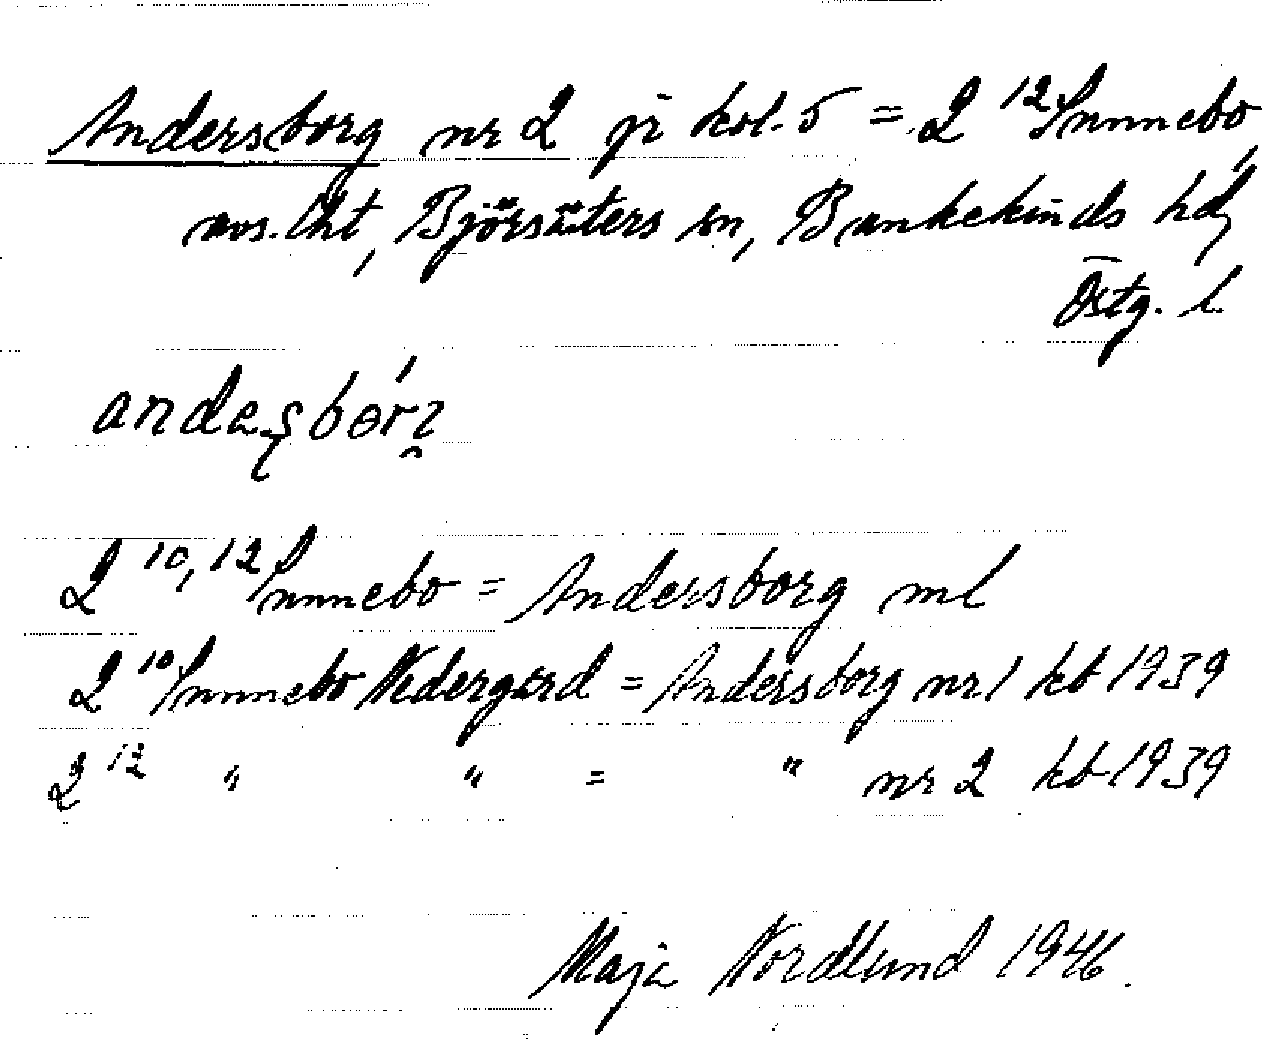 Andersborg nr 2 ji kol. 5 = 2¹² Sunnebo,
avs. lht, Björsäters sn, Bankekinds hd,
Östg. l.
andeʂbórꜿ
2¹⁰,¹² Sunnebo = Andersborg ml
2¹⁰ Sunnebo Nedergård = Andersborg nr 1 kb 1939
2¹² " " = " nr 2 kb 1939
Maja Nordlund 1946.